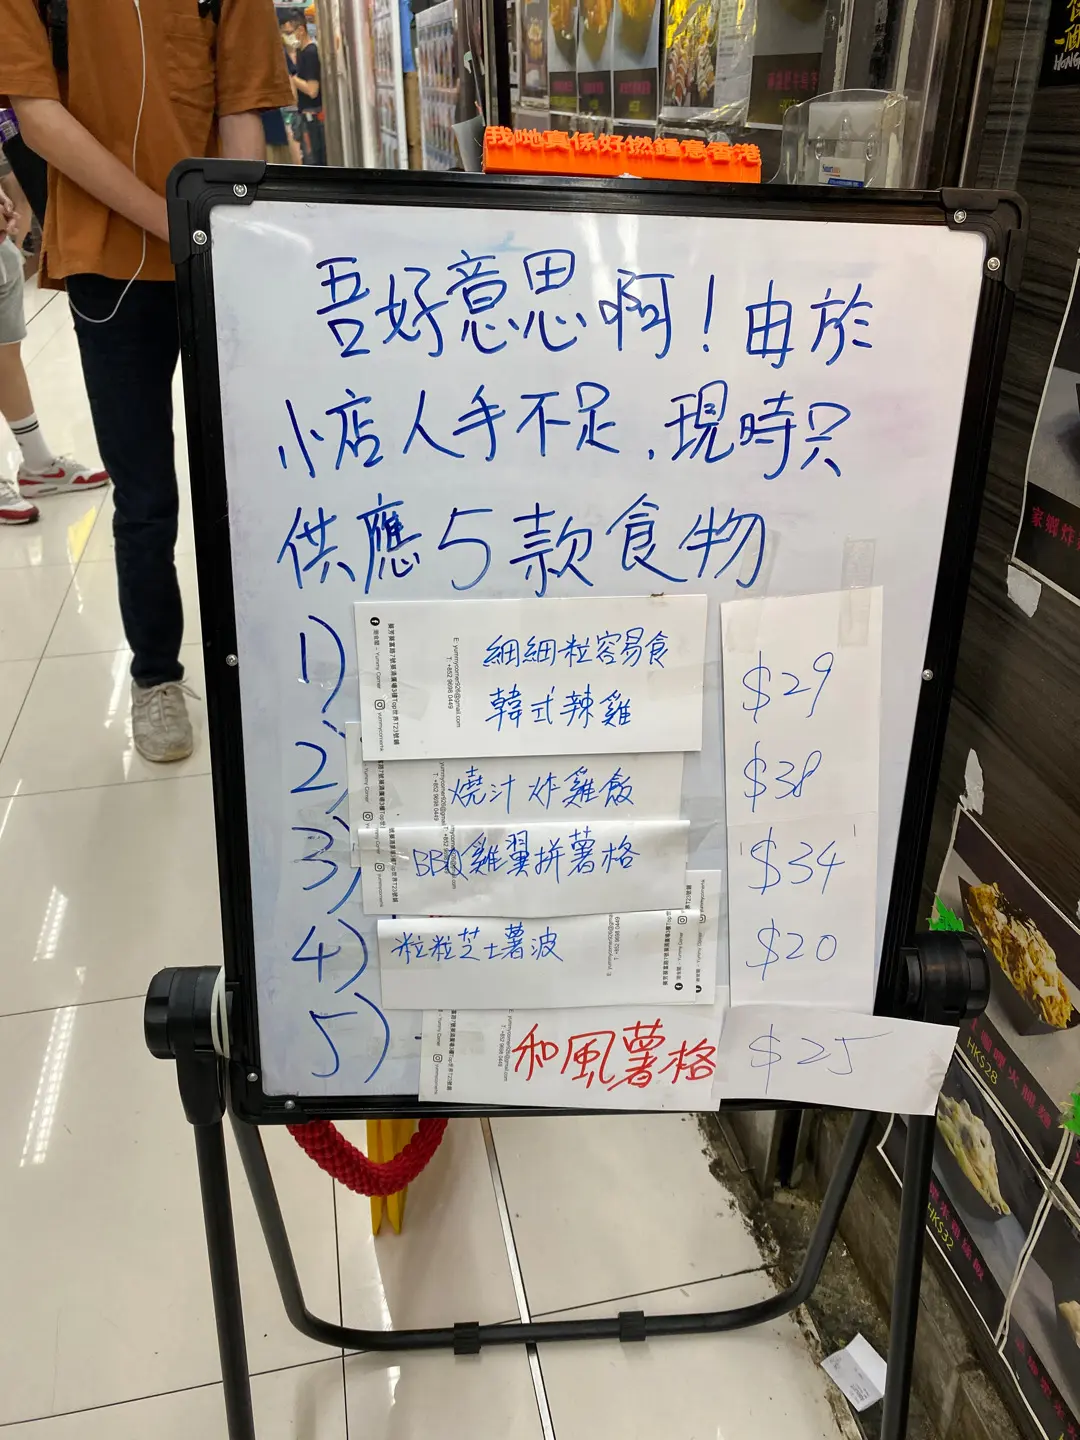 我哋真係好撚鍾意香港
吾好意思啊！由於
小店人手不足，現時只
供應5款食物
1) 細細粒容易食
韓式辣雞 $29
2) 燒汁炸雞飯 $38
3) BBQ雞翼拼薯格 $34
4) 粒粒芝士薯波 $20
5) 和風薯格 $25
E: yummycorner926@gmail.com
T: +852 9698 0449
HK$28
HK$32